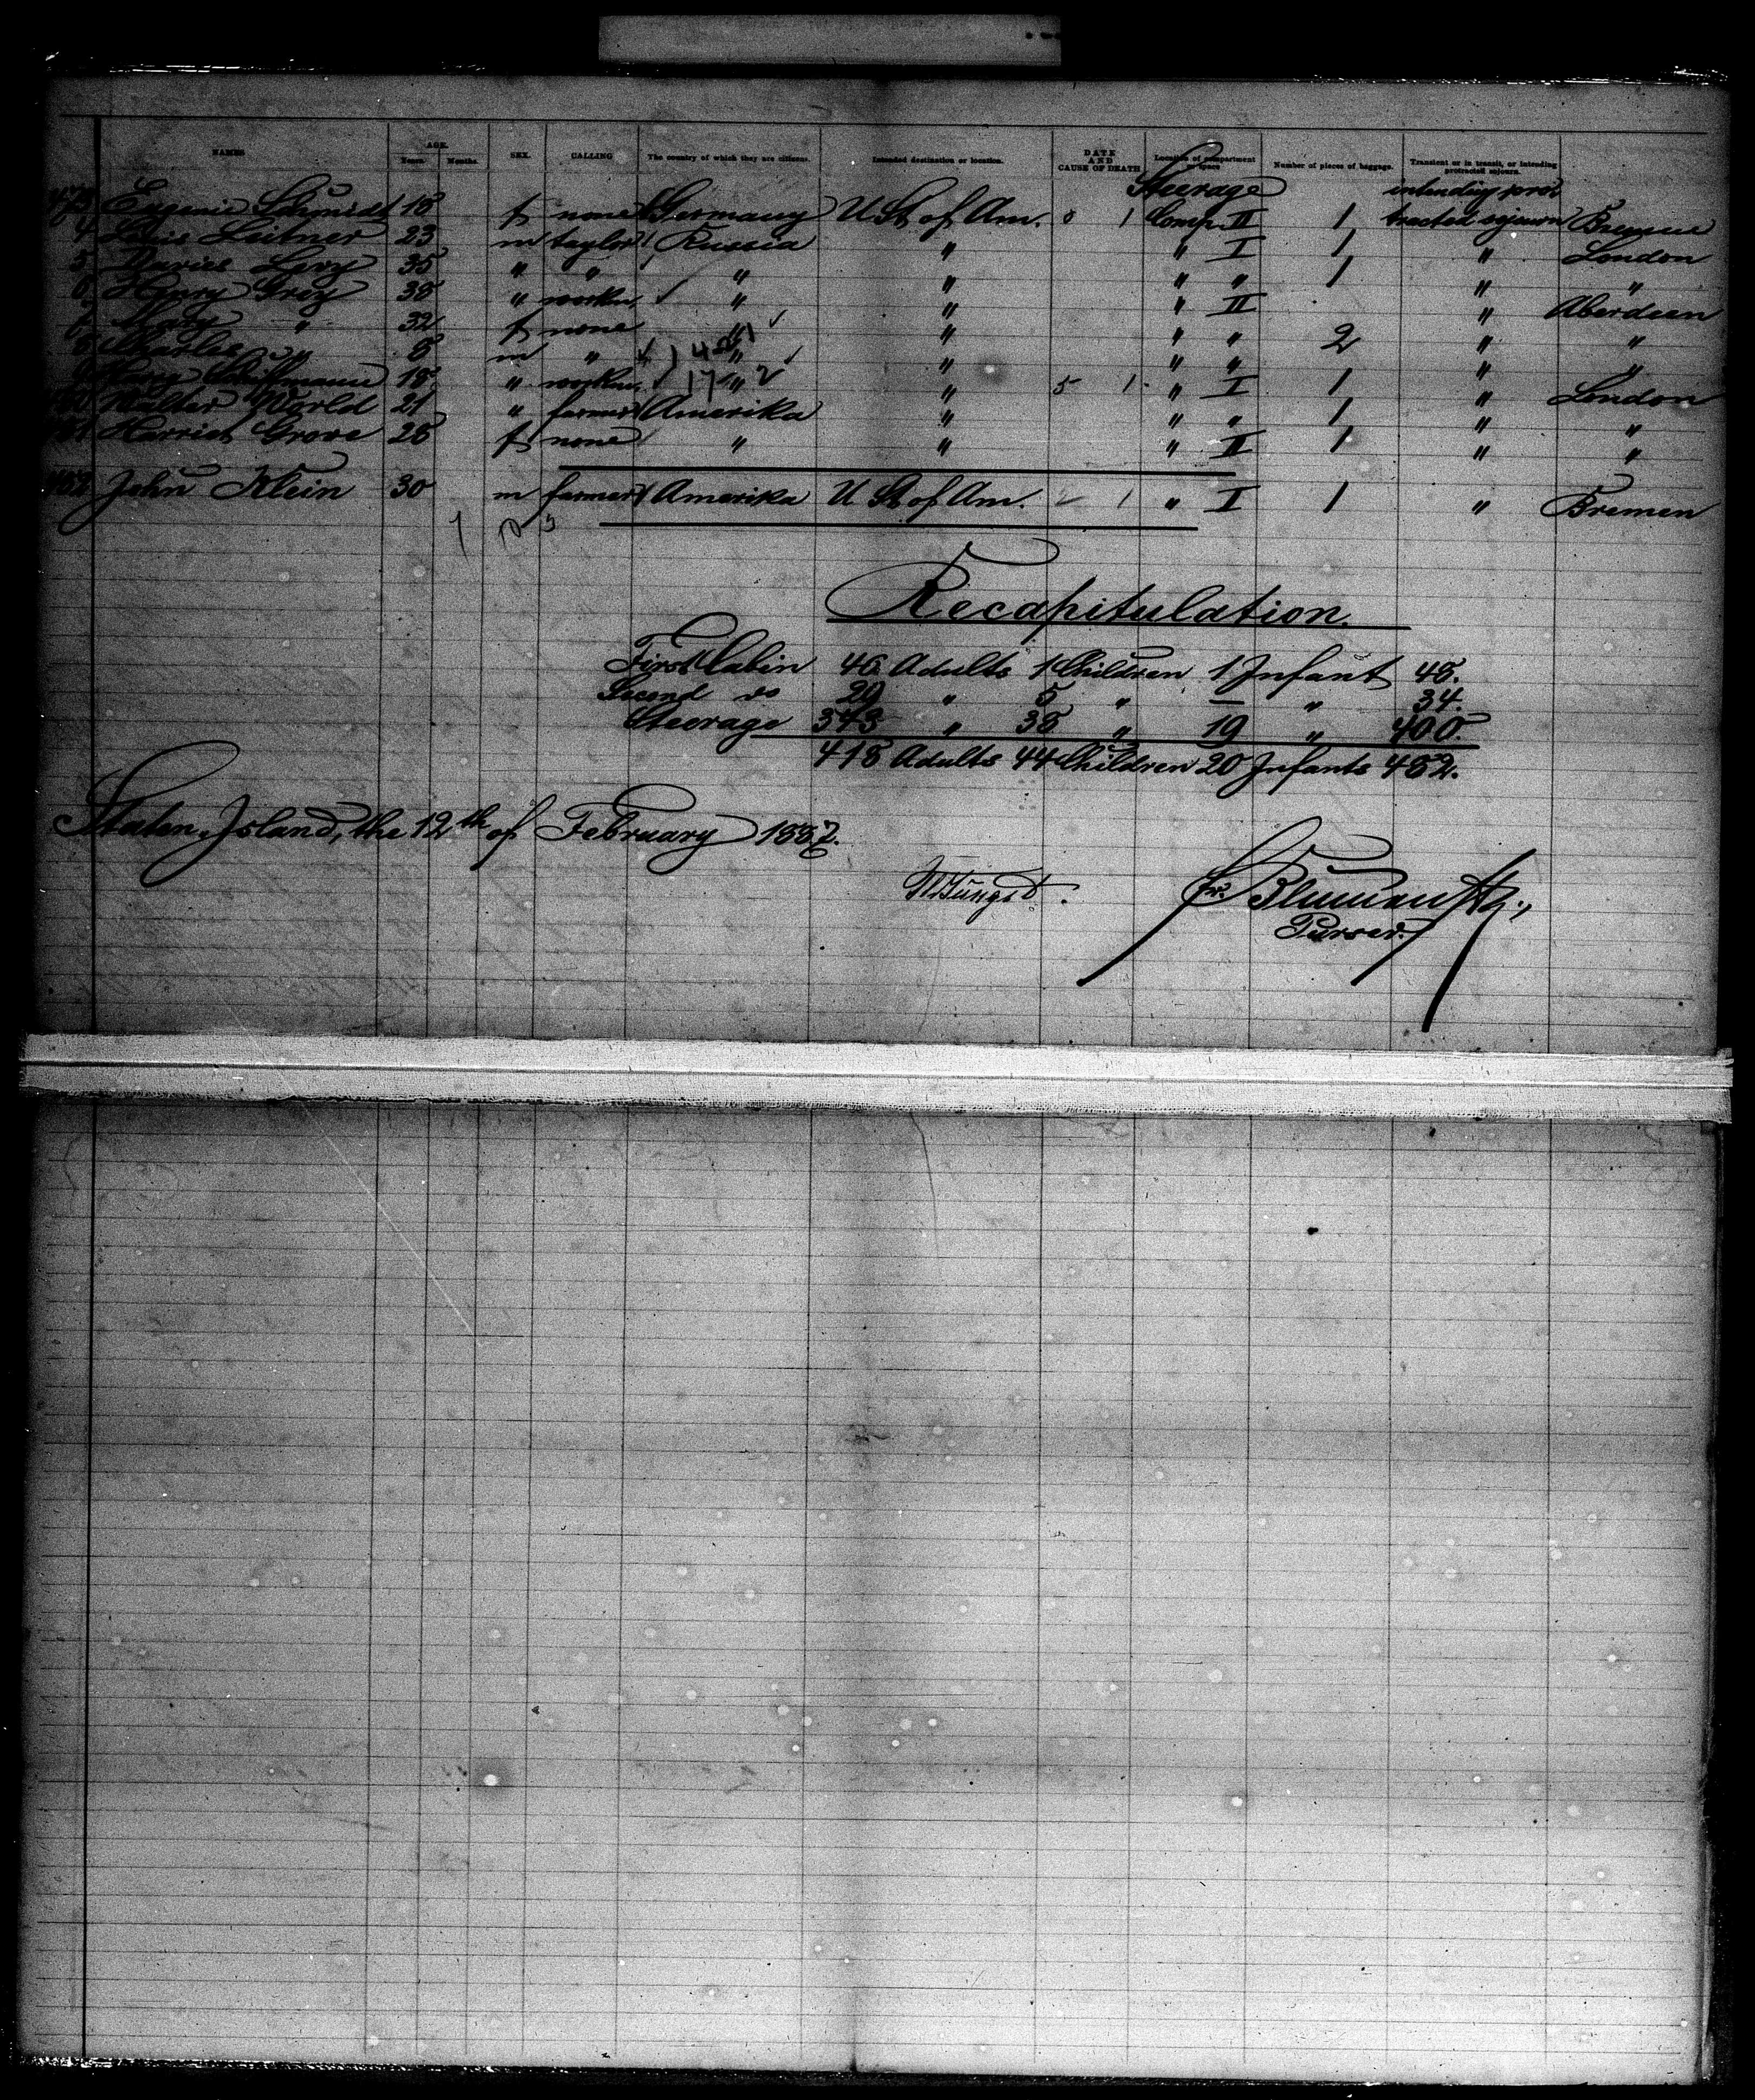 NAMES AGE. Years. Months. SEX. CALLING The country of which they are citizens. Intended destination or location. DATE AND CAUSE OF DEATH Location of compartment or space Number of pieces of baggage. Transient or in transit, or intending protracted sojourn.
Steerage intending pro-
473 Eugenie Schmidt 18 f none Germany U St of Am. 1 Comp. II 1 tracted sojourn Bremen
4 Louis Leitner 23 m taylor Russia " " I 1 " London
5 Davies Levy 35 " " " " " " 1 " "
6 Henry Grey 38 " workm. " " " II " Aberdeen
7 Mary " 32 f none " " " " 2 " "
8 Charles " 8 m " " " " " " "
9 Harry Schiffmann 18 " workm. " " 5 1 " I 1 " London
480 Walter World 21 " farmer Amerika " " " 1 " "
481 Harriet Grove 28 f none " " " II 1 " "
482 John Klein 30 m farmer Amerika U St of Am. 1 " I 1 " Bremen
Recapitulation.
First Cabin 46 Adults 1 Children 1 Infant 48.
Second do 29 " 5 " — " 34.
Steerage 343 " 38 " 19 " 400.
418 Adults 44 Children 20 Infants 482.
Staten-Island, the 12th of February 1887.
Purser.